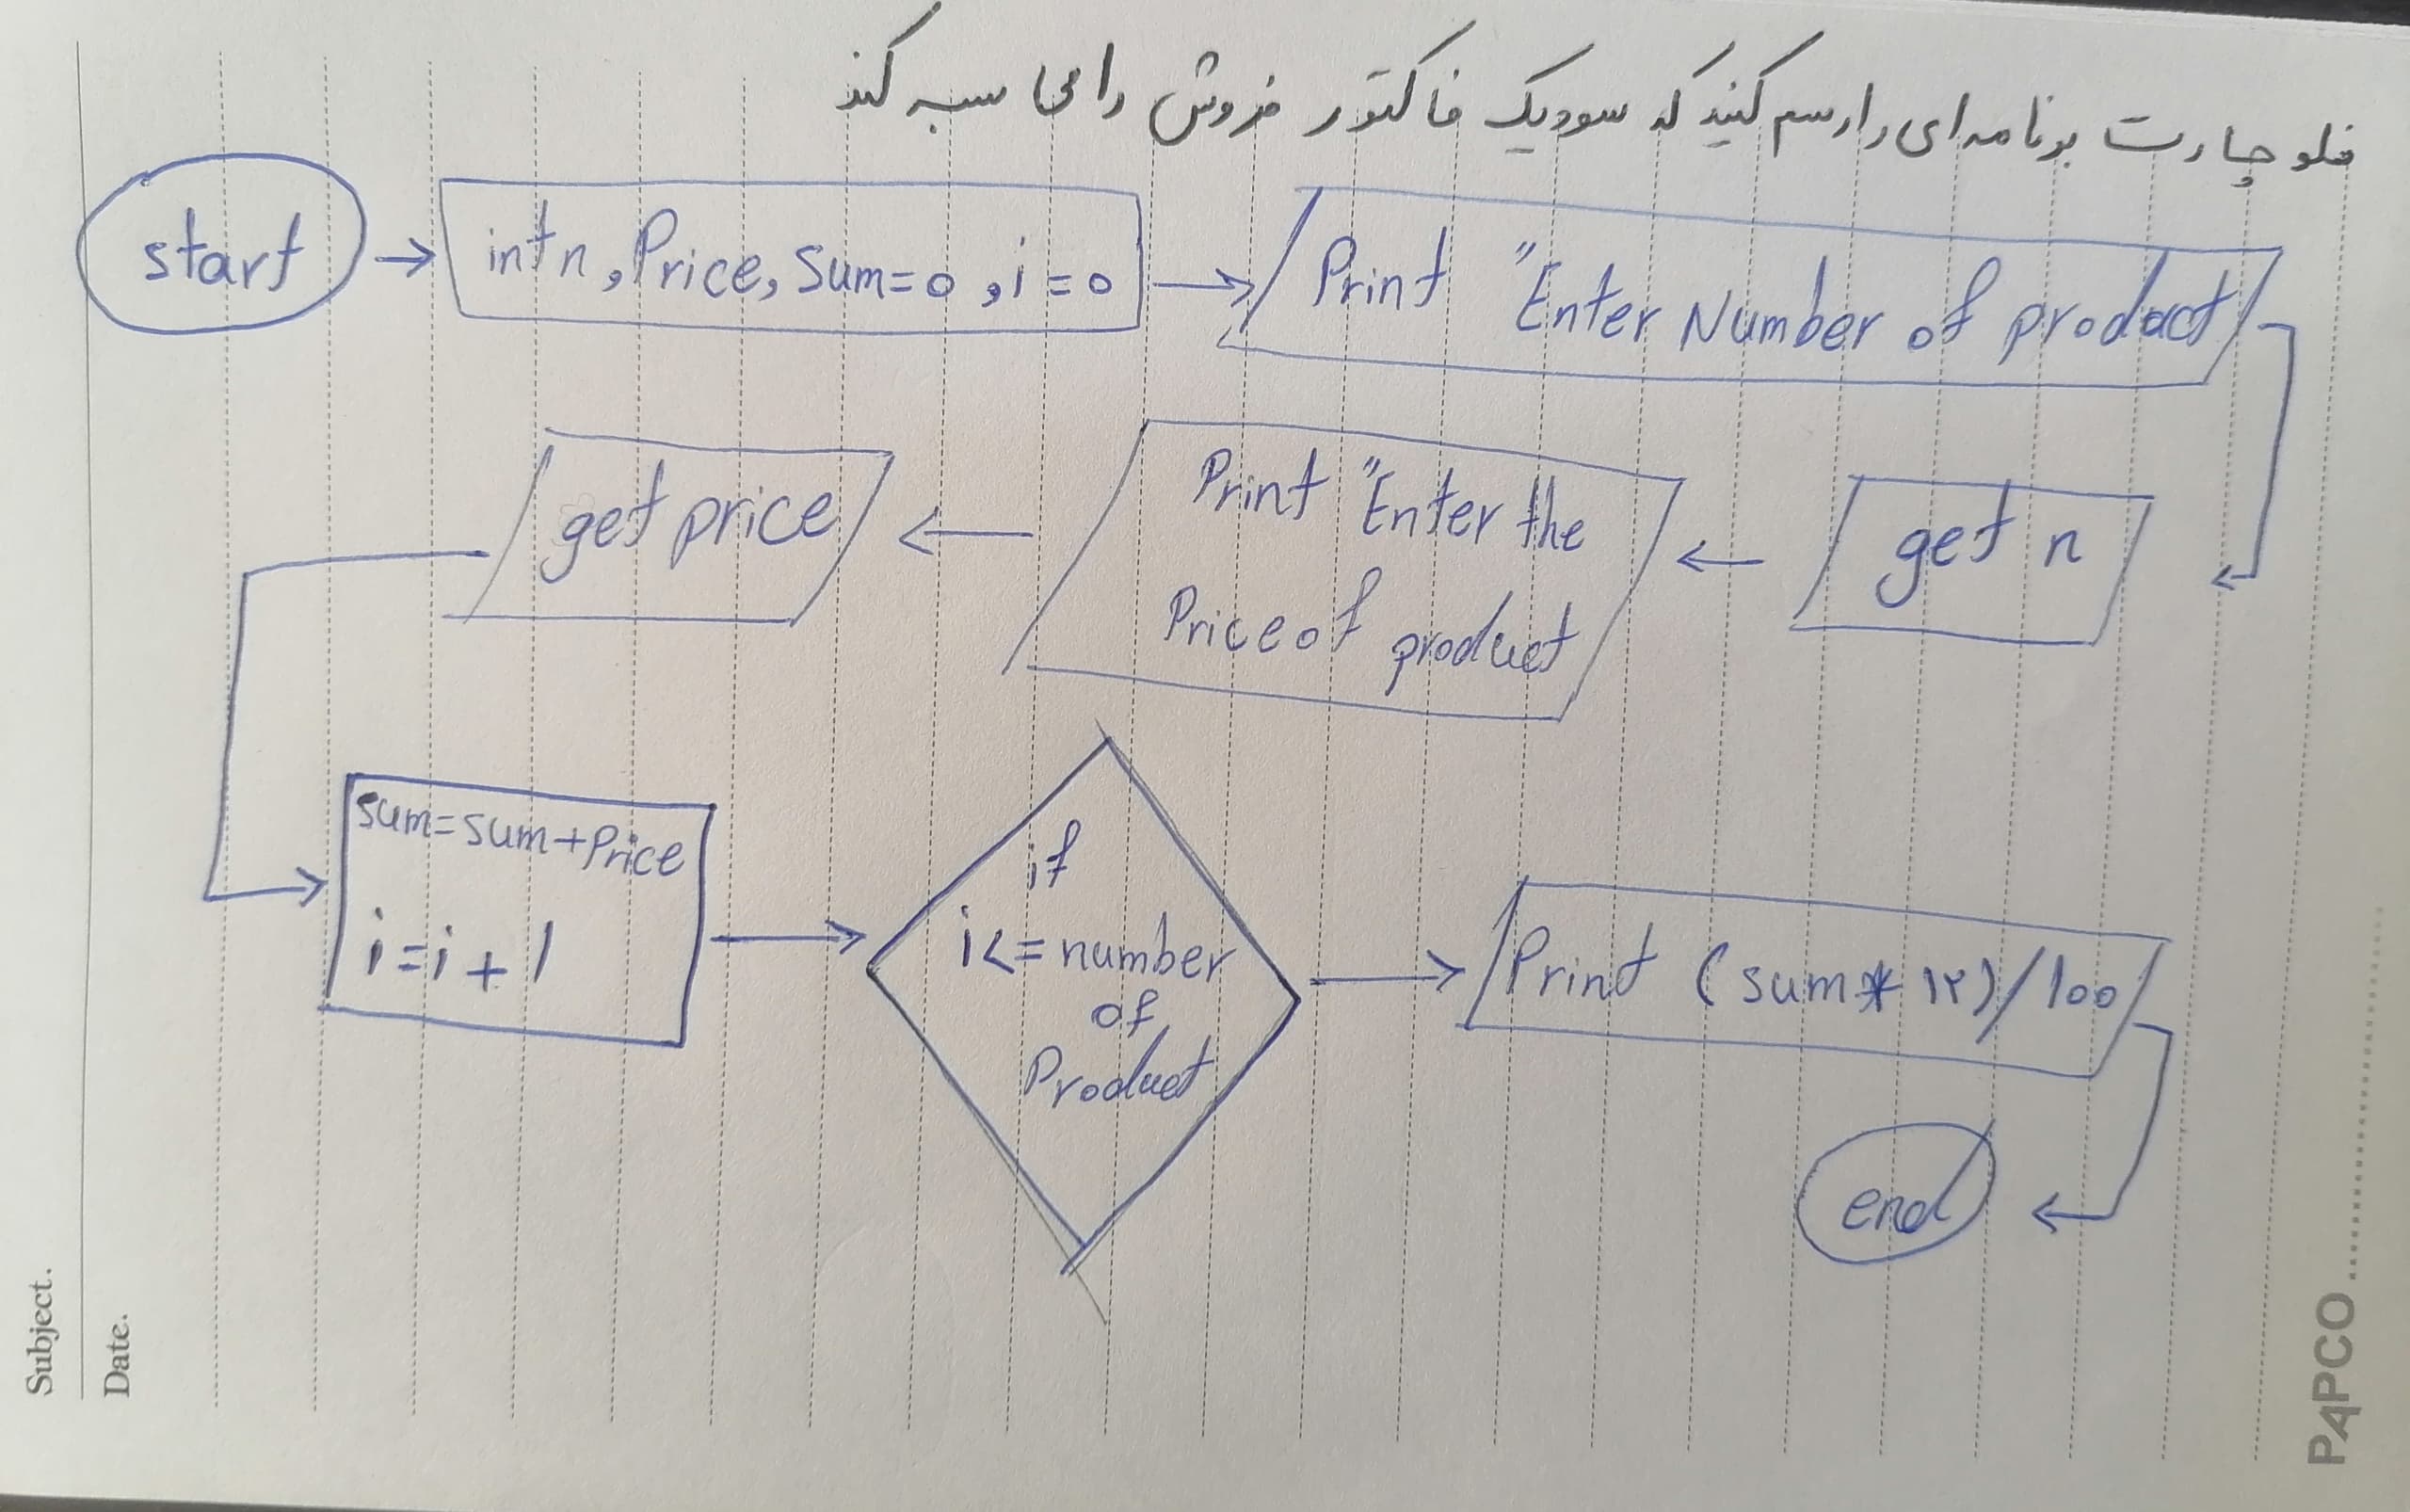 فلوچارت برنامه‌ای را رسم کنید که سود یک فاکتور فروش را محاسبه کند
start
int n, Price, Sum=0, i=0
Print "Enter Number of product
get n
Print "Enter the
Price of product
get price
sum=sum+Price
i=i+1
if
i<=number
of
Product
Print (sum * ۱۲)/100
end
Subject.
Date.
PAPCO